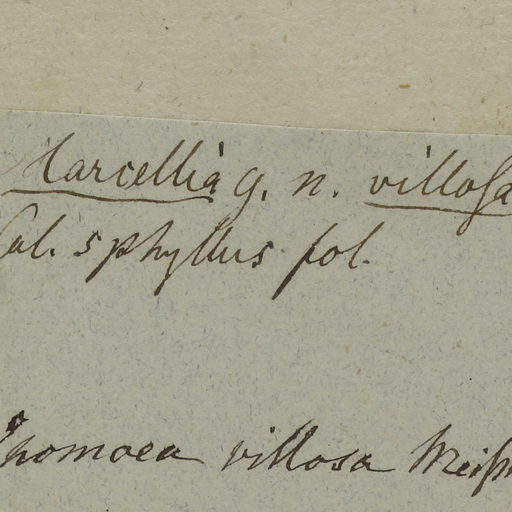 Marcellia g. n. villosa
Cal. 5phyllus fol.
Ipomoea villosa Meisn